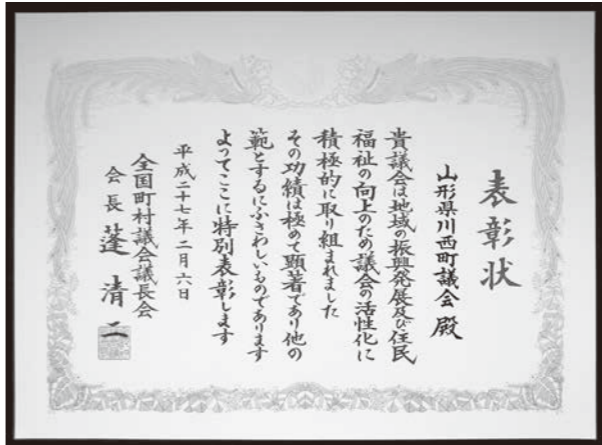 表彰状
山形県川西町議会 殿
貴議会は地域の振興発展及び住民
福祉の向上のため議会の活性化に
積極的に取り組まれました
その功績は極めて顕著であり他の
範とするにふさわしいものであります
よってここに特別表彰します
平成二十七年二月六日
全国町村議会議長会
会長 蓬 清二